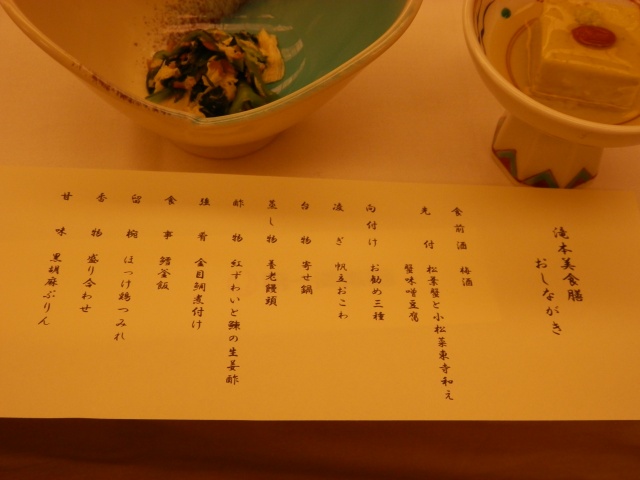 滝本美食膳
おしながき
食前酒 梅酒
先付 松葉蟹と小松菜東寺和え
蟹味噌豆腐
向付け お勧め三種
凌ぎ 帆立おこわ
台物 寄せ鍋
蒸し物 養老饅頭
酢物 紅ずわいと鰊の生姜酢
強肴 金目鯛煮付け
食事 鱈釜飯
留椀 ほっけ鶏つみれ
香物 盛り合わせ
甘味 黒胡麻ぷりん